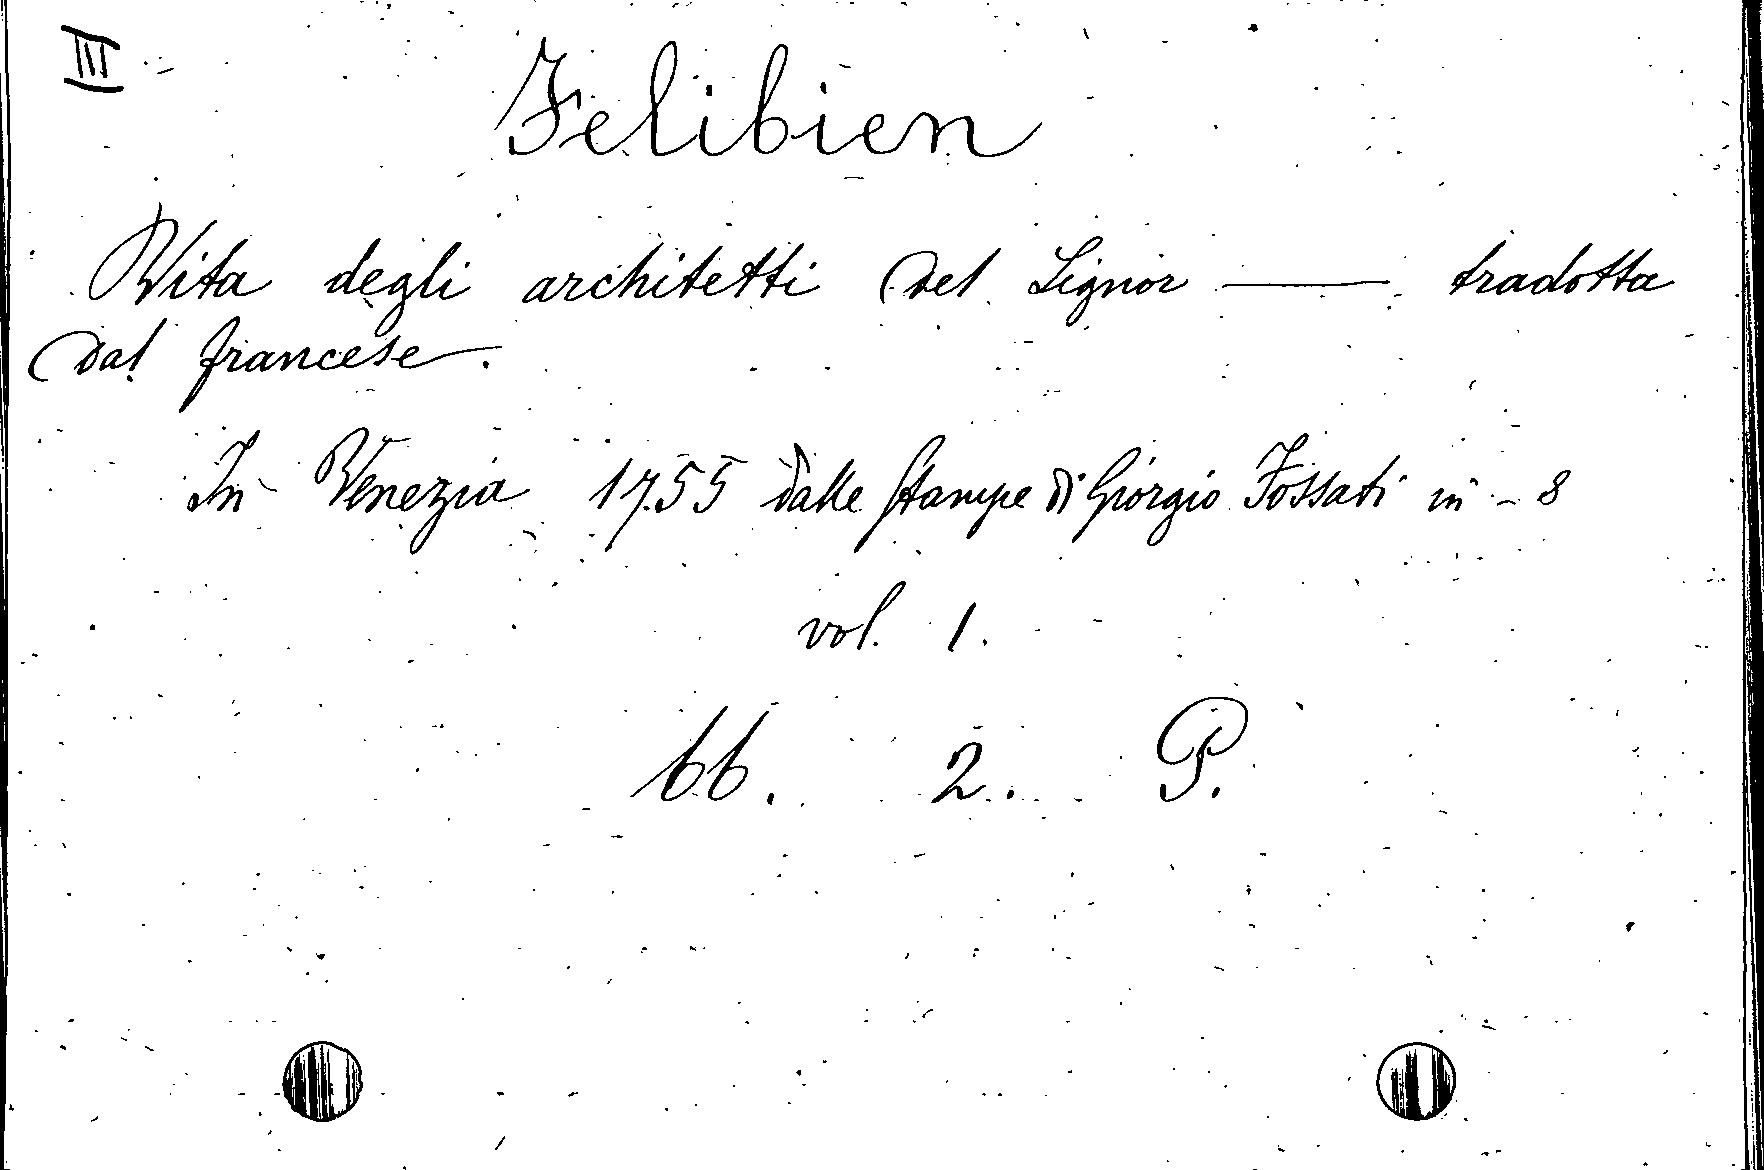 III
Felibien
Vita degli architetti del Signor —— tradotta
dal francese.
In Venezia 1755 dalle stampe di Giorgio Fossati in - 8
vol. 1.
66. 2. P.